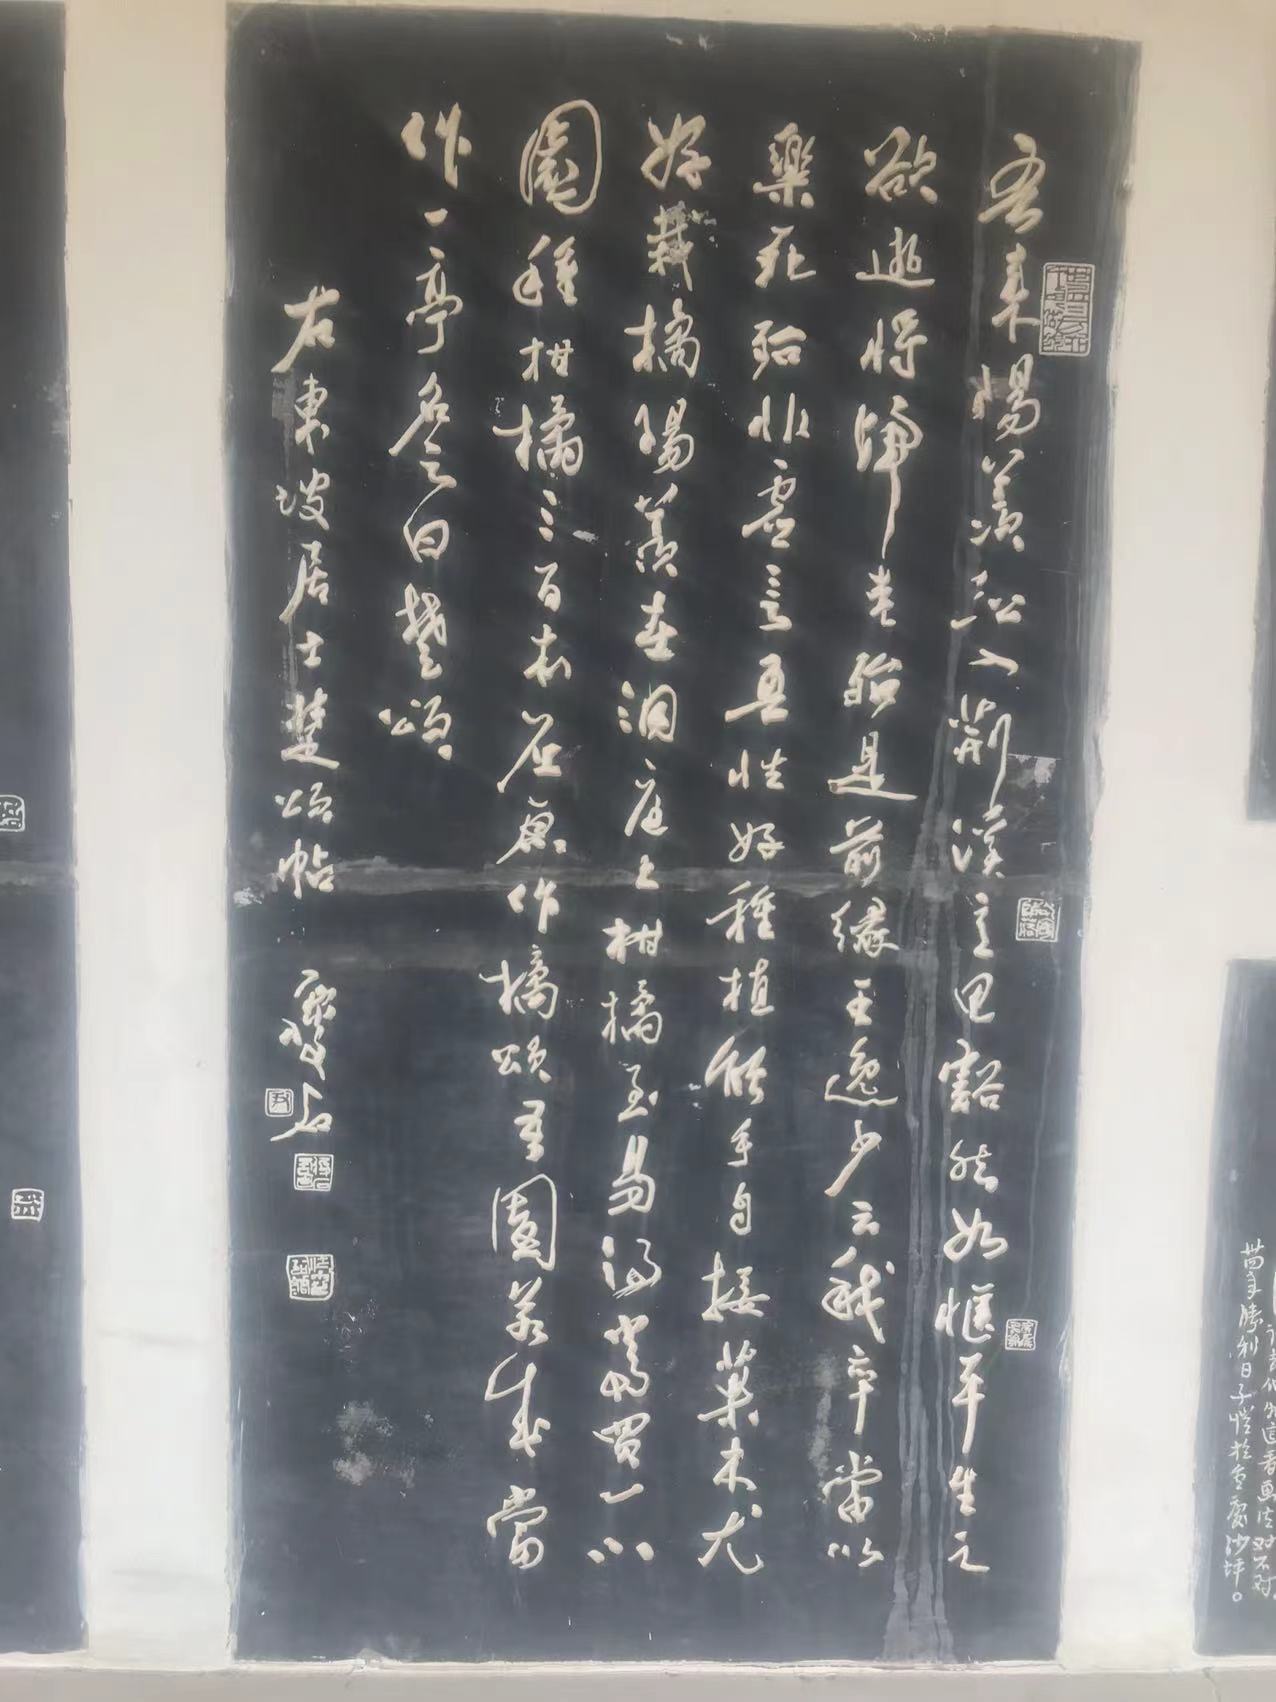 吾来陽羡船入荆溪意思豁然如愜平生之
欲逝將歸老殆是前緣王逸少云我卒當以
樂死殆非虚言吾性好種植能手自接菓木尤
好栽橘陽羡在洞庭上柑橘至易得當買一小
園種柑橘三百本屈原作橘頌吾園若成當
作一亭名之曰楚頌
右東坡居士楚頌帖
勝利日子愷於重慶沙坪。